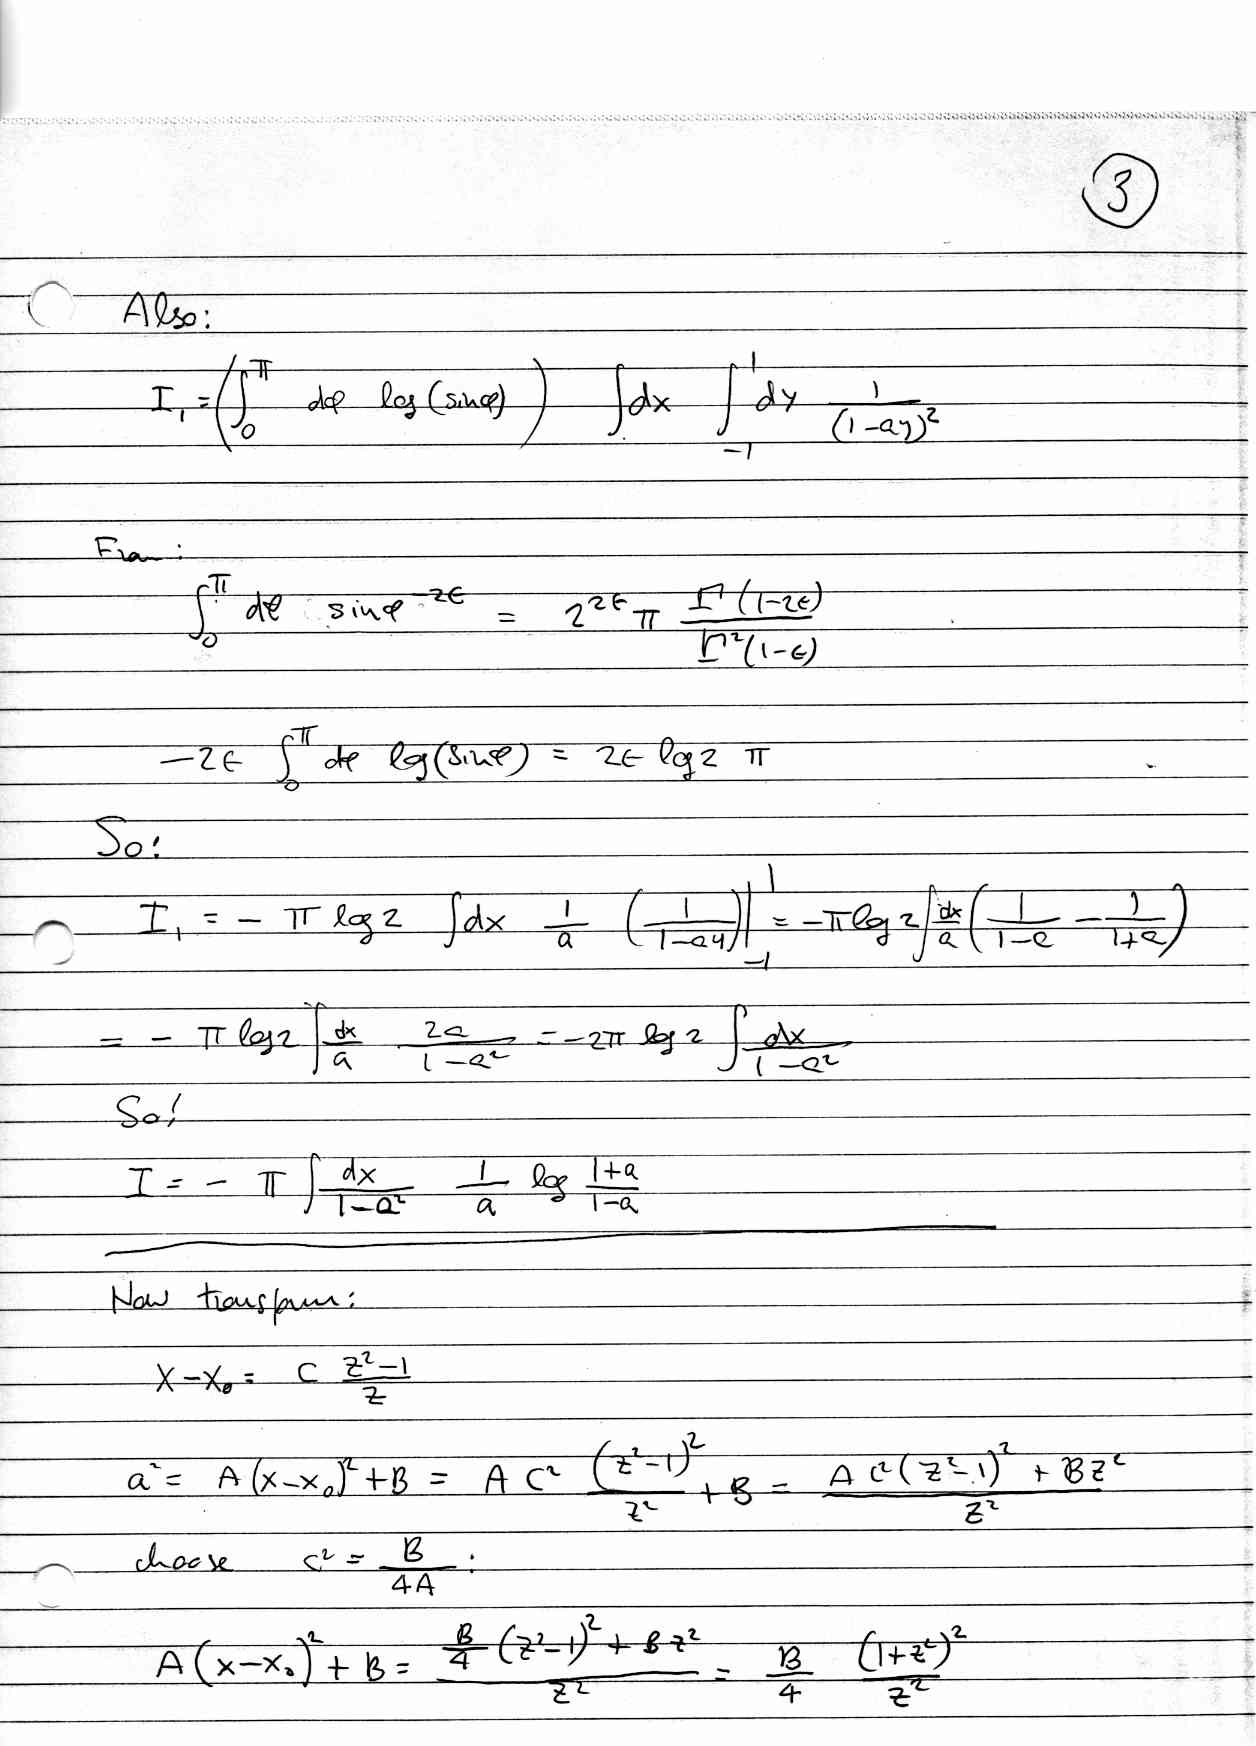 3
Also:
I₁ = (∫₀^π dφ log(sinφ)) ∫dx ∫₋₁^1 dy 1/(1-ay)²
From:
∫₀^π dφ sinφ^(-2ε) = 2^(2ε) π Γ(1-2ε)/Γ²(1-ε)
-2ε ∫₀^π dφ log(sinφ) = 2ε log2 π
So:
I₁ = - π log2 ∫dx 1/a (1/(1-ay))|₋₁^1 = -π log2 ∫dx/a (1/(1-a) - 1/(1+a))
= - π log2 ∫dx/a 2a/(1-a²) = -2π log2 ∫dx/(1-a²)
So!
I = - π ∫dx/(1-a²) 1/a log (1+a)/(1-a)
Now transform:
x-x₀ = C (z²-1)/z
a² = A(x-x₀)²+B = A C² (z²-1)²/z² + B = (A C²(z²-1)² + Bz²)/z²
choose C² = B/4A :
A(x-x₀)²+B = (B/4 (z²-1)² + Bz²)/z² = B/4 (1+z²)²/z²